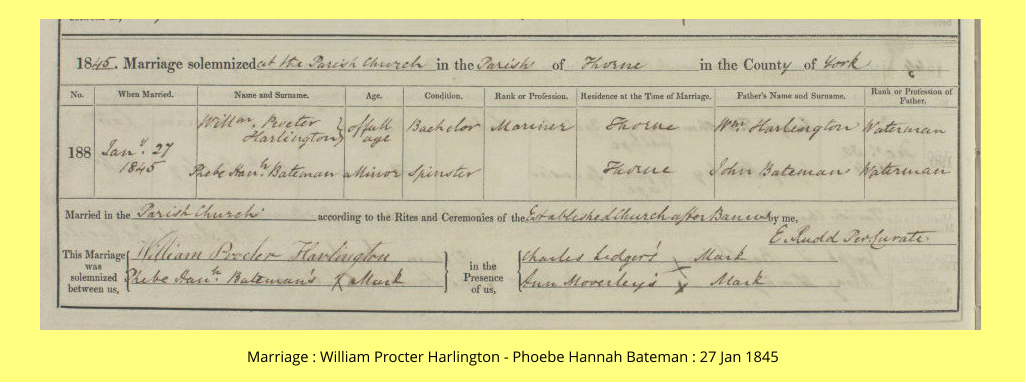 1845. Marriage solemnized at the Parish Church in the Parish of Thorne in the County of York
No. When Married. Name and Surname. Age. Condition. Rank or Profession. Residence at the Time of Marriage. Father's Name and Surname. Rank or Profession of Father.
188 Jany. 27 1845 Willm. Procter Harlington of full age Bachelor Mariner Thorne Wm. Harlington Waterman
Phebe Hanh. Bateman a Minor Spinster Thorne John Bateman Waterman
Married in the Parish Church according to the Rites and Ceremonies of the Established Church after Banns by me,
E. Rudd Per. Curate.
This Marriage was solemnized between us, William Procter Harlington
Phebe Hanh. Bateman's X Mark
in the Presence of us, Charles Ledger's X Mark
Ann Moverley's X Mark
Marriage : William Procter Harlington - Phoebe Hannah Bateman : 27 Jan 1845